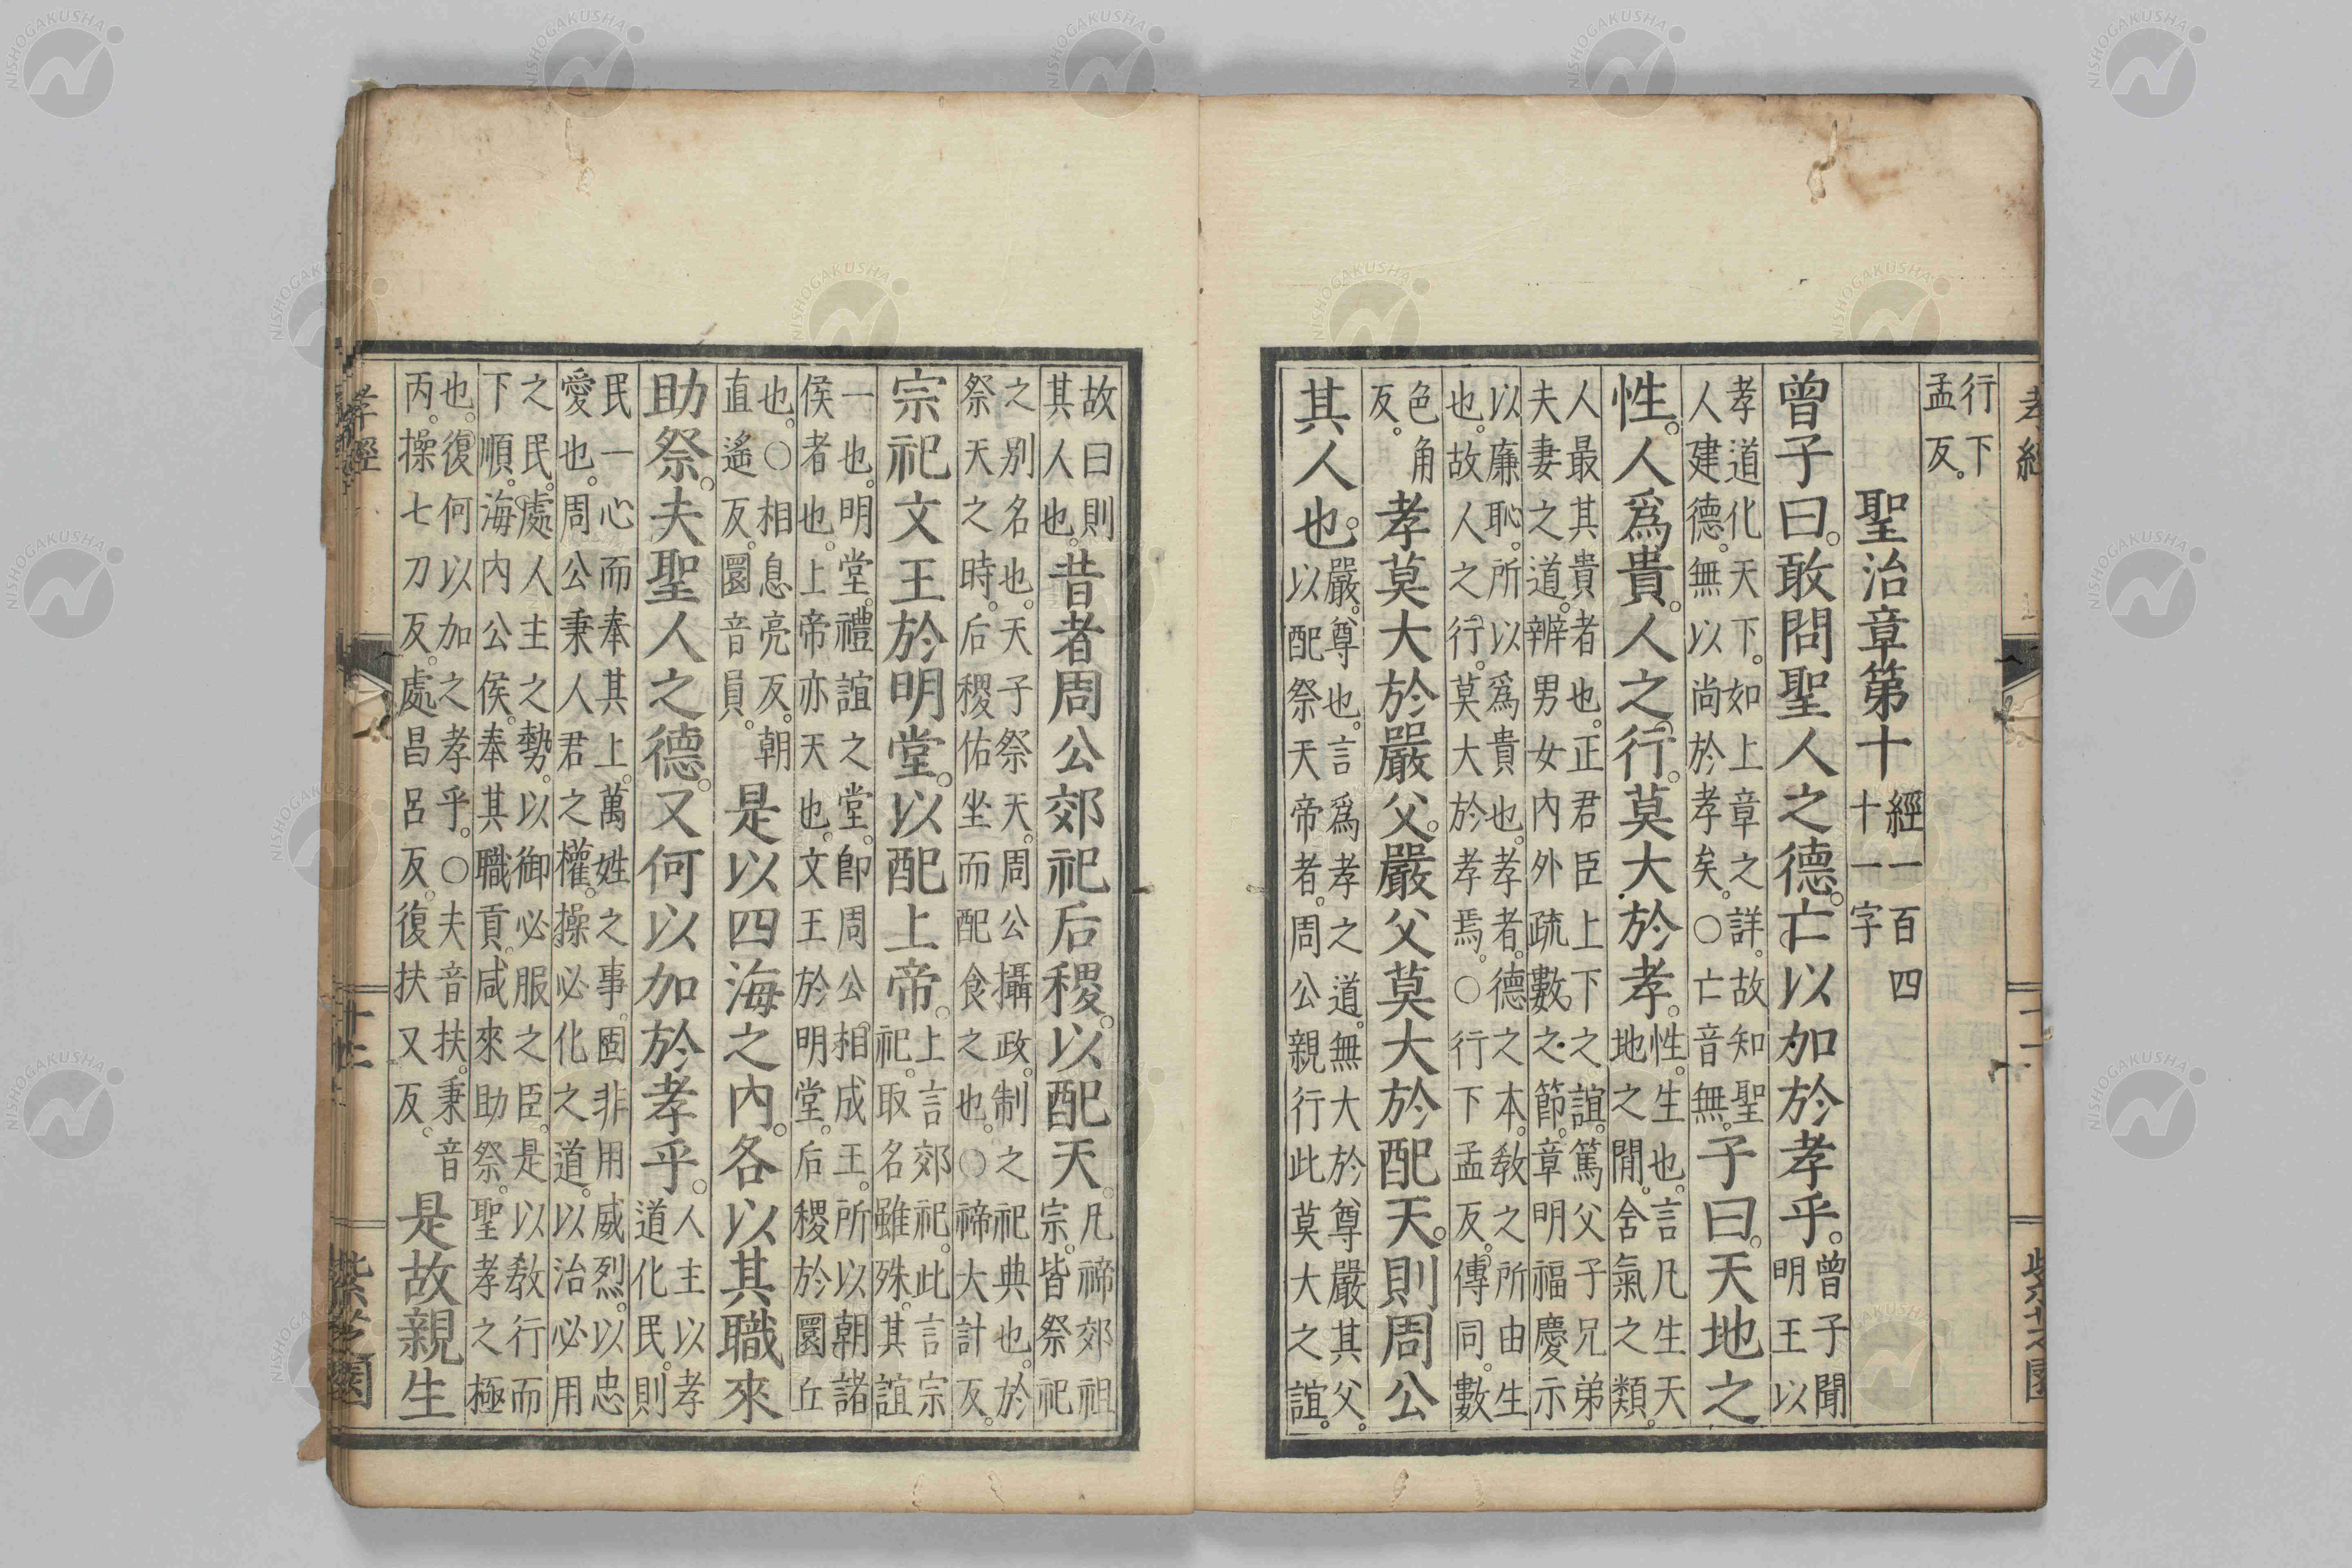 行下
孟反。
聖治章第十
經一百四
十一字
曾子曰。敢問聖人之德。亡以加於孝乎。
曾子聞
明王以
孝道化天下。如上章之詳。故知聖
人建德。無以尚於孝矣。○亡音無。
子曰。天地之
性。人爲貴。人之行。莫大於孝。
性。生也。言凡生天
地之閒。含氣之類。
人最其貴者也。正君臣上下之誼。篤父子兄弟
夫妻之道。辨男女内外疏數之節。章明福慶示
以廉恥。所以爲貴也。孝者。德之本。教之所由生
也。故人之行。莫大於孝焉。○行下孟反。傳同。數
色角
反。
孝莫大於嚴父。嚴父莫大於配天。則周公
其人也。
嚴。尊也。言爲孝之道。無大於尊嚴其父。
以配祭天帝者。周公親行此莫大之誼。
故曰則
其人也。
昔者周公郊祀后稷。以配天。
凡禘郊祖
宗。皆祭祀
之別名也。天子祭天。周公攝政。制之祀典也。於
祭天之時。后稷佑坐而配食之也。○禘大計反。
宗祀文王於明堂。以配上帝。
上言郊祀。此言宗
祀。取名雖殊。其誼
一也。明堂。禮誼之堂。即周公相成王。所以朝諸
侯者也。上帝亦天也。文王於明堂。后稷於圜丘
也。○相息亮反。朝
直遙反。圜音員。
是以四海之内。各以其職來
助祭。夫聖人之德。又何以加於孝乎。
人主以孝
道化民。則
民一心而奉其上。萬姓之事。固非用威烈。以忠
愛也。周公秉人君之權。操必化之道。以治必用
之民。處人主之勢。以御必服之臣。是以教行而
下順。海内公侯。奉其職貢。咸來助祭。聖孝之極
也。復何以加之孝乎。○夫音扶。秉音
丙。操七刀反。處昌呂反。復扶又反。
是故親生
孝經
紫芝園